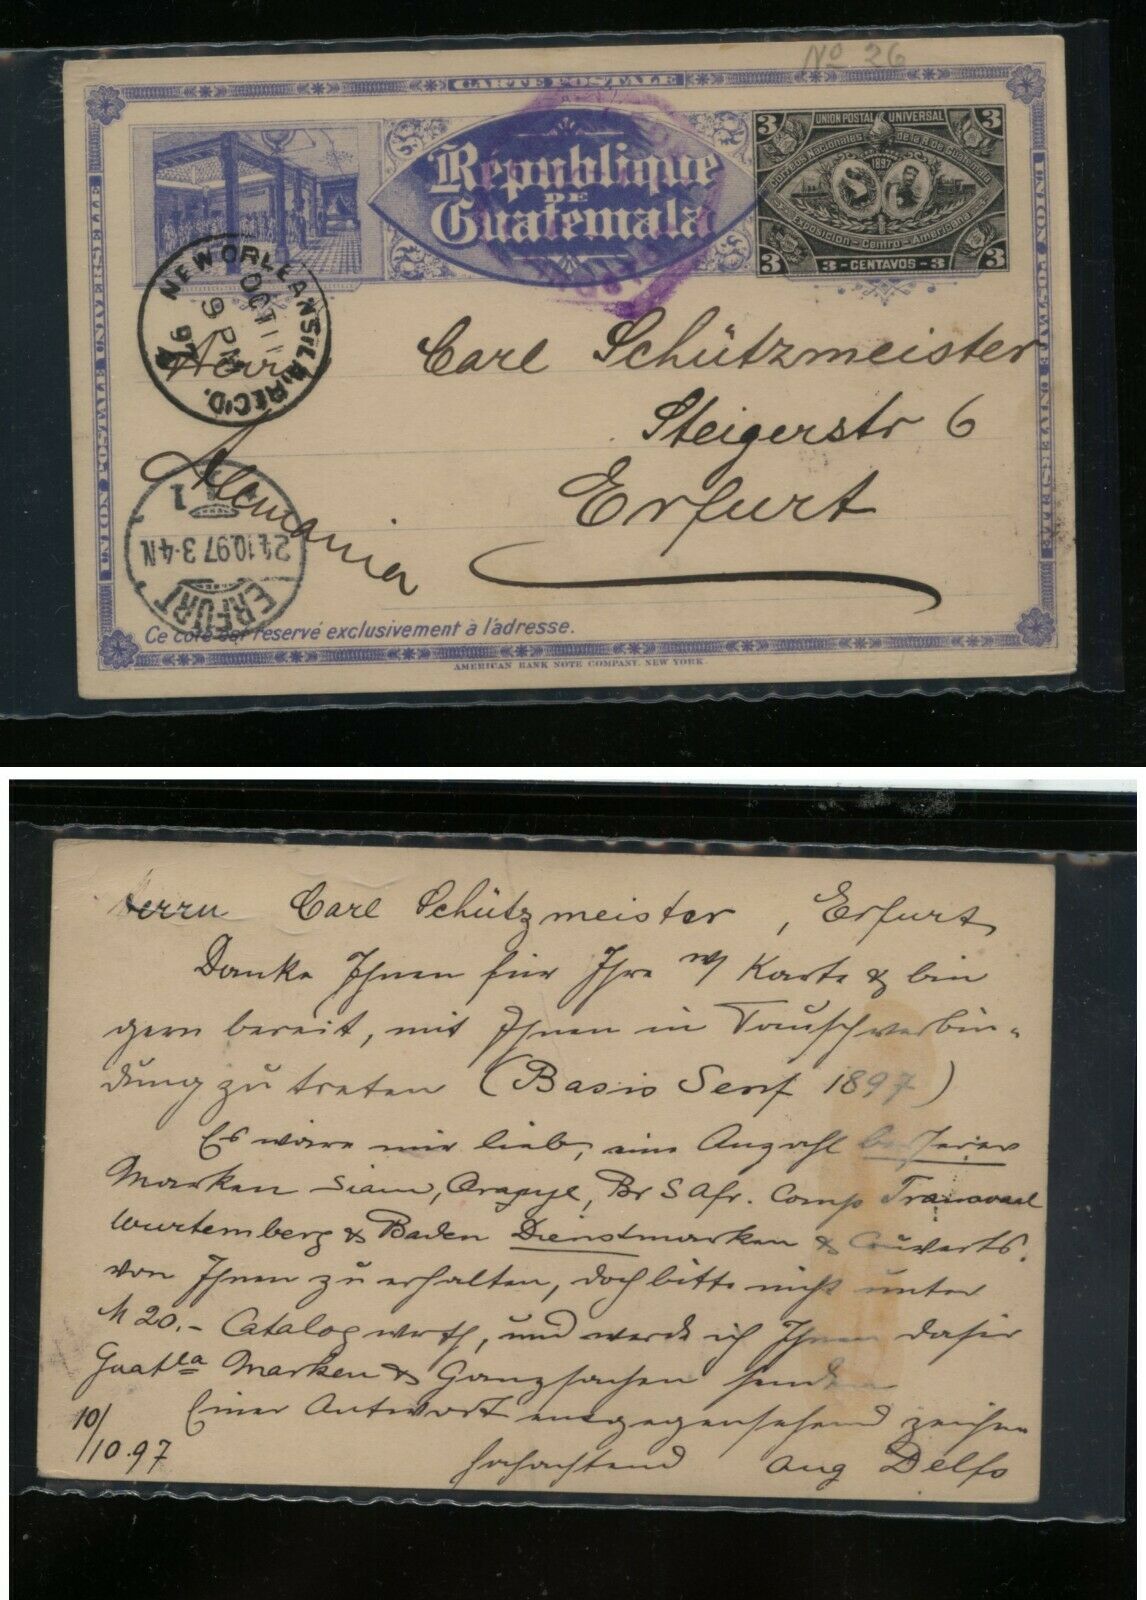 No 26
CARTE POSTALE
République
DE
Guatemala
3 UNION POSTAL UNIVERSAL 3
Correos Nacionales de la R. de Guatemala
1897
Exposicion-Centro-Americana
3 3-CENTAVOS-3 3
UNION POSTALE UNIVERSELLE
UNION POSTALE UNIVERSELLE
NEW ORLEANS, LA. REC'D.
OCT 11
9 PM
97
Herrn Carl Schützmeister
Steigerstr 6
Erfurt
Alemania
ERFURT
24.10.97 3-4N
1
Ce coté est reservé exclusivement à l'adresse.
AMERICAN BANK NOTE COMPANY, NEW YORK.
Herrn Carl Schützmeister, Erfurt
Danke Ihnen für Ihre w/ Karte & bin
gern bereit, mit Ihnen in Tauschverbin-
dung zu treten (Basis Senf 1897)
Es wäre mir lieb, eine Anzahl besserer
Marken Siam, Br S Afr. Comp Transvaal
Wurtemberg & Baden Dienstmarken & Couverts.
von Ihnen zu erhalten, doch bitte nicht unter
M 20.- Catalog werth, und werde ich Ihnen dafür
Guatla Marken & Ganzsachen senden
Einer Antwort entgegensehend zeichne
10/10.97 hochachtend Aug Delfs